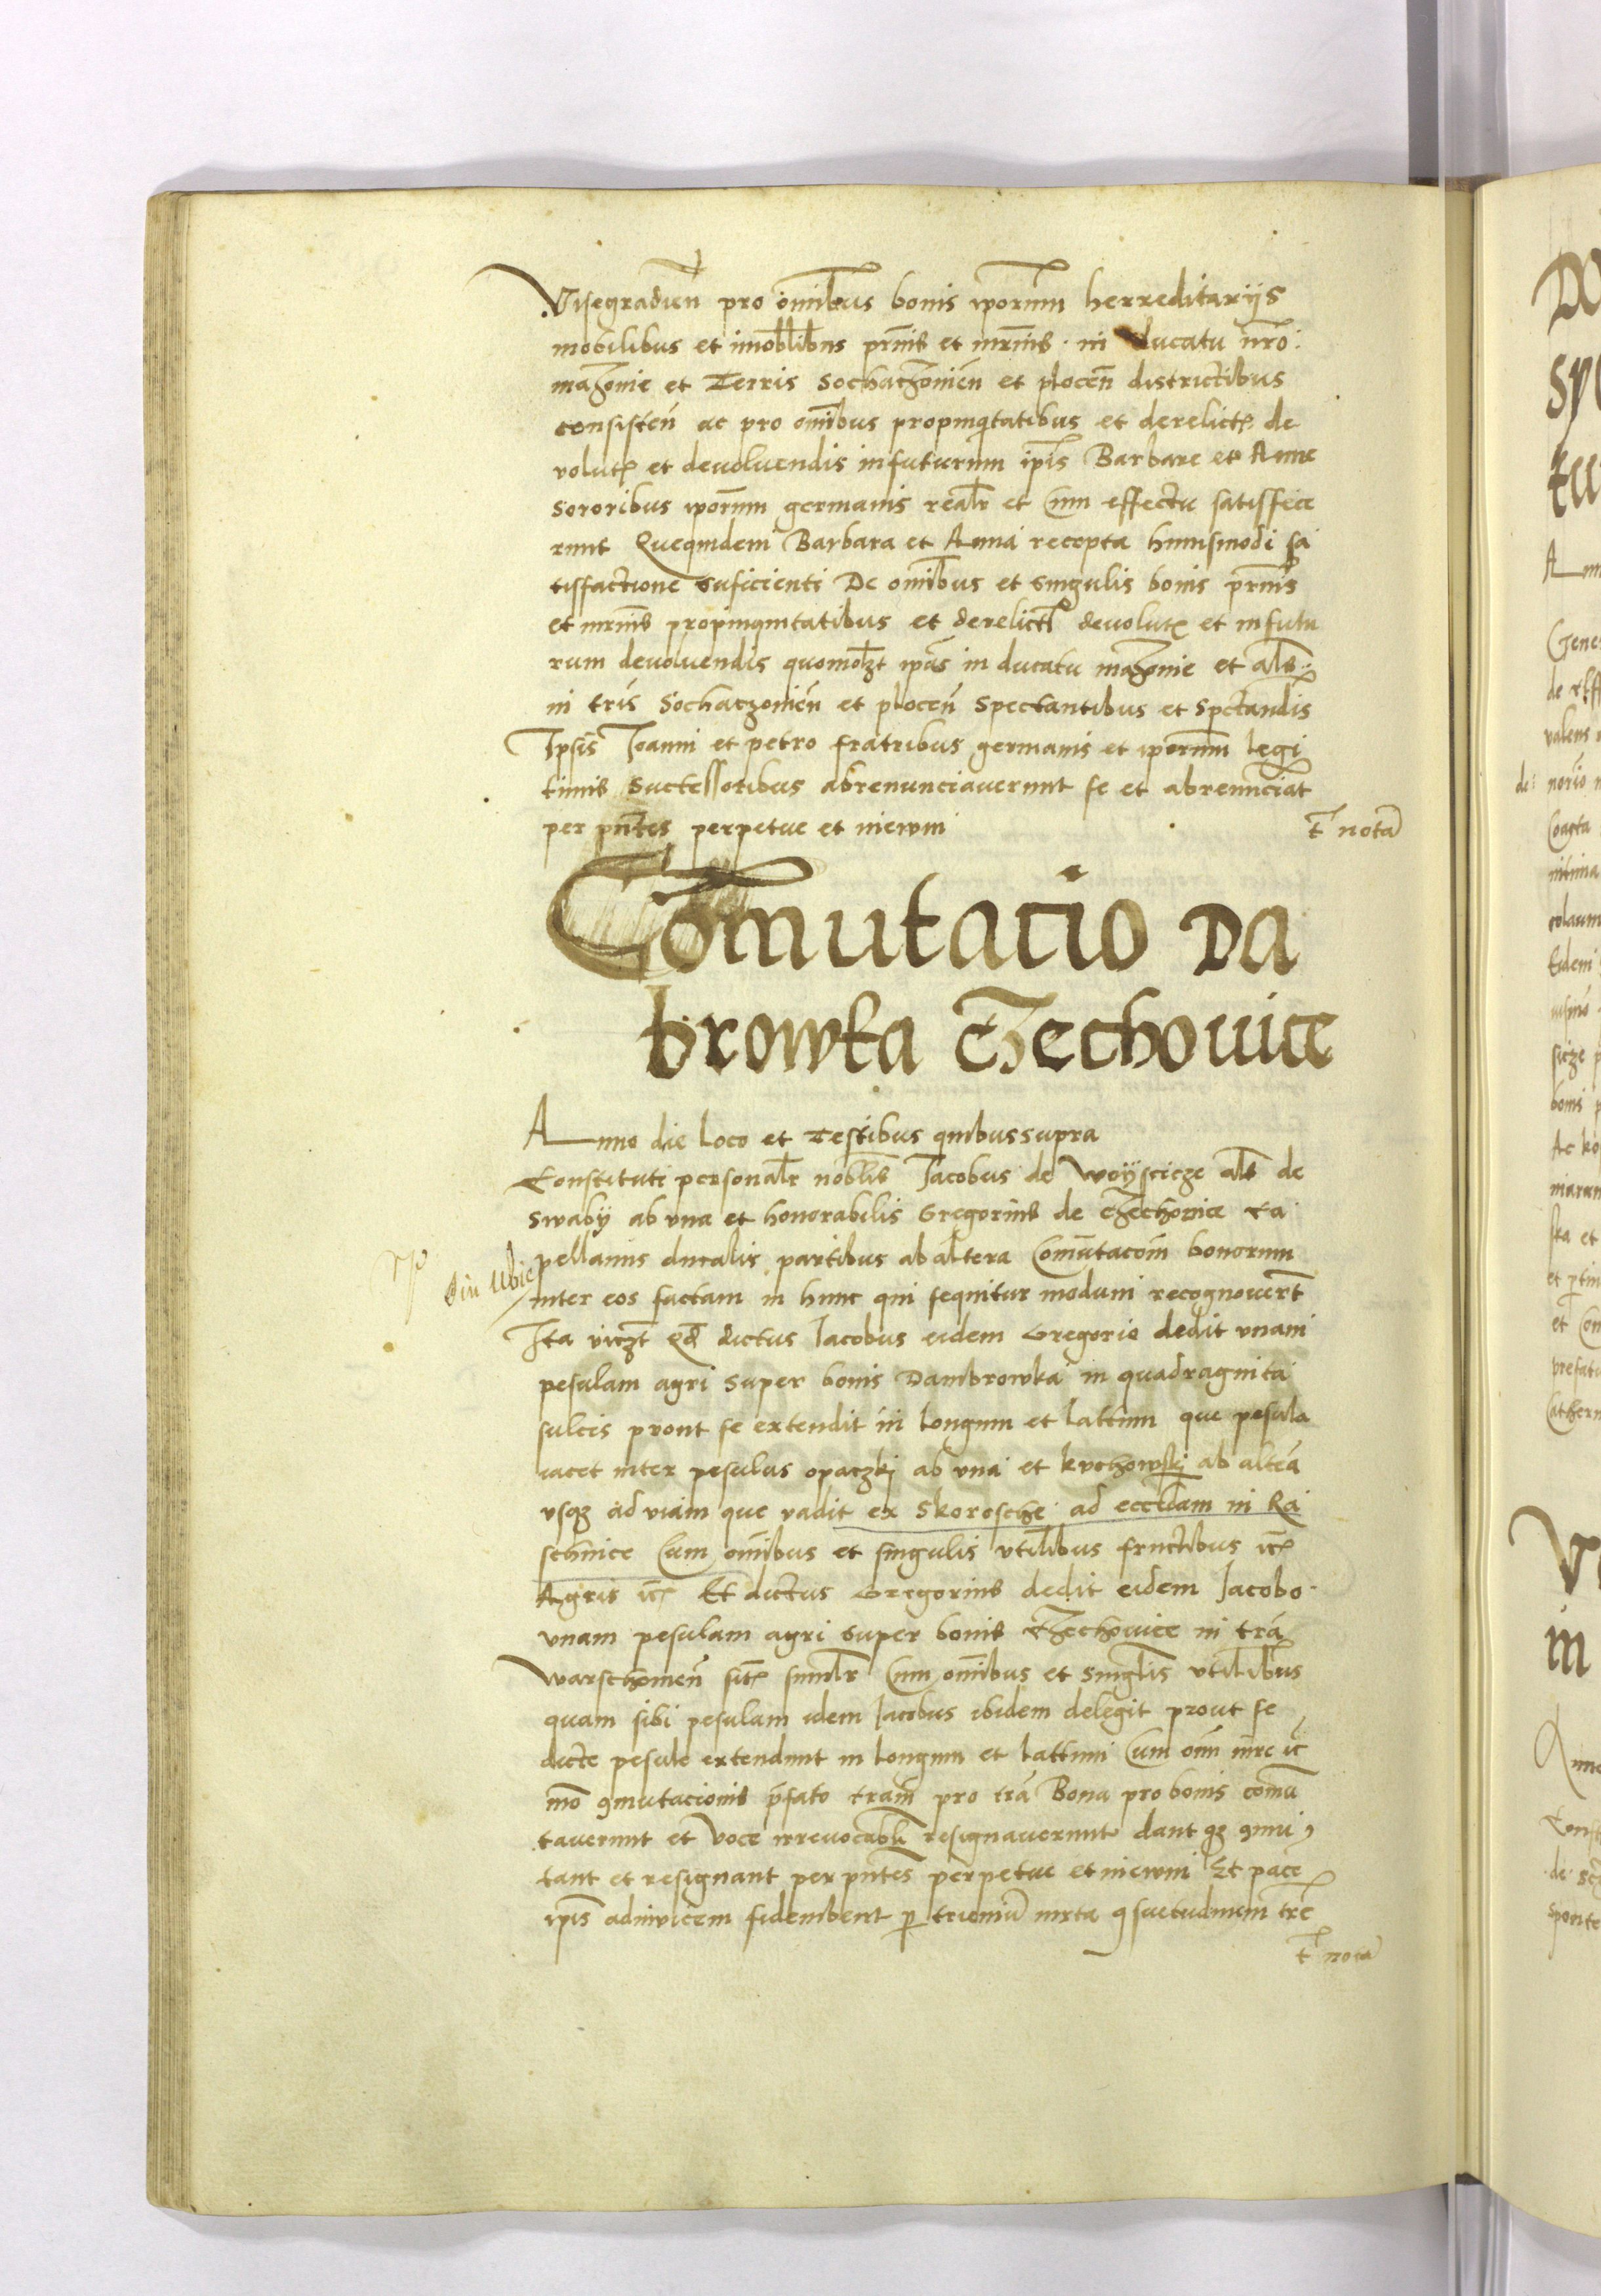 Visegradien̄ pro om̄ibus bonis ip̄orum herreditariis
mobilibus et imobl̄ibus pr̄nis et mr̄nis in ducatu nr̄o
mazouie et Terris Sochaczouien̄ et plocen̄ districtibus
consisten̄ ac pro om̄ibus propinq̄tatibus et derelict de
volut et deuoluendis infuturum ip̄is Barbare et Anne
Sororibus ip̄orum germanis realr̄ et Cum effectu satisfece
runt Quequidem Barbara et Anna recepta huiusmodi sa
tisfactione suficienti De om̄ibus et singulis bonis pr̄nis
et mr̄nis propinquitatibus et derelict deuolut et infutu
rum deuoluendis quomol̄zt ip̄as in ducatu mazouie et al̄s
in tr̄is Sochaczouien̄ et plocen̄ Spectantibus et Spctandis
Ipsis Joanni et petro fratribus germanis et ip̄orum legi
timis Successoribus abrenunciauerunt se et abrenūciāt
per pn̄tes perpetue et in ewm
t nota
Com̄utacio Da
browka Czechouice
Anno die loco et Testibus quibus supra
Constituti personalr̄ nobl̄is Jacobus de Woÿscicze al̄s de
Swabÿ ab vna et honorabilis Gregorius de Czechouice Ca
pellanus ducalis partibus ab altera Com̄utacom̄ bonorum
inter eos factam in hunc qui sequitur modum recognouer̄t
Ita vicz̄t Qd̄ dictus Jacobus eidem Gregorio dedit vnam
pesulam agri Super bonis Dambrowka in quadraginta
sulcis prout se extendit in longum et lattum que pesula
iacet inter pesulas opaczkj ab vna et kvchowskj ab alt̄ea
vsqz ad viam que vadit ex Skorosche ad eccl̄iam in Ra
schince Cum om̄ibus et singulis vtilibus fructibus ic̄
Agris ic̄ Et dictus Gregorius dedit eidem Jacobo
vnam pesulam agri super bonis Czechouice in tr̄a
Warschouien̄ sit similr̄ Cum om̄ibus et singl̄is vtilibus
quam sibi pesulam idem Jacobus ibidem delegit prout se
dicte pesule extendunt in longum et lattum Cum om̄i iure ic̄
mō 9mutacionis p̄fato tr̄am pro tr̄a Bona pro bonis comū
tauerunt et Voce irreuocabl̄i resignauerunt dantqz 9mū
tant et resignant per pn̄tes perpetue et in ewm Et pacē
ip̄is adinuicem fideiubent p trieniū iuxta 9suetudinem tr̄e
t nota